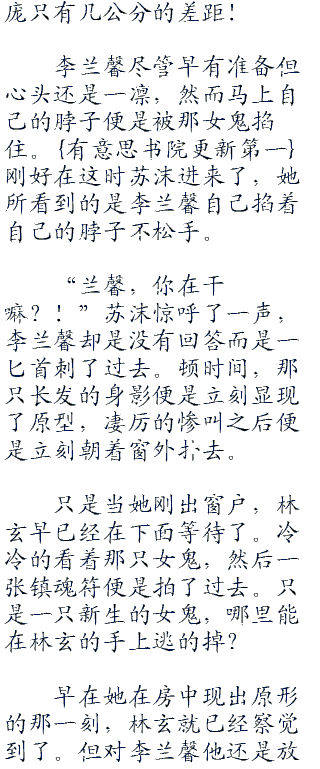 庞只有几公分的差距！
李兰馨尽管早有准备但
心头还是一凛，然而马上自
己的脖子便是被那女鬼掐
住。{有意思书院更新第一}
刚好在这时苏沫进来了，她
所看到的是李兰馨自己掐着
自己的脖子不松手。
“兰馨，你在干
嘛？！”苏沫惊呼了一声，
李兰馨却是没有回答而是一
匕首刺了过去。顿时间，那
只长发的身影便是立刻显现
了原型，凄厉的惨叫之后便
是立刻朝着窗外扑去。
只是当她刚出窗户，林
玄早已经在下面等待了。冷
冷的看着那只女鬼，然后一
张镇魂符便是拍了过去。只
是一只新生的女鬼，哪里能
在林玄的手上逃的掉？
早在她在房中现出原形
的那一刻，林玄就已经察觉
到了。但对李兰馨他还是放